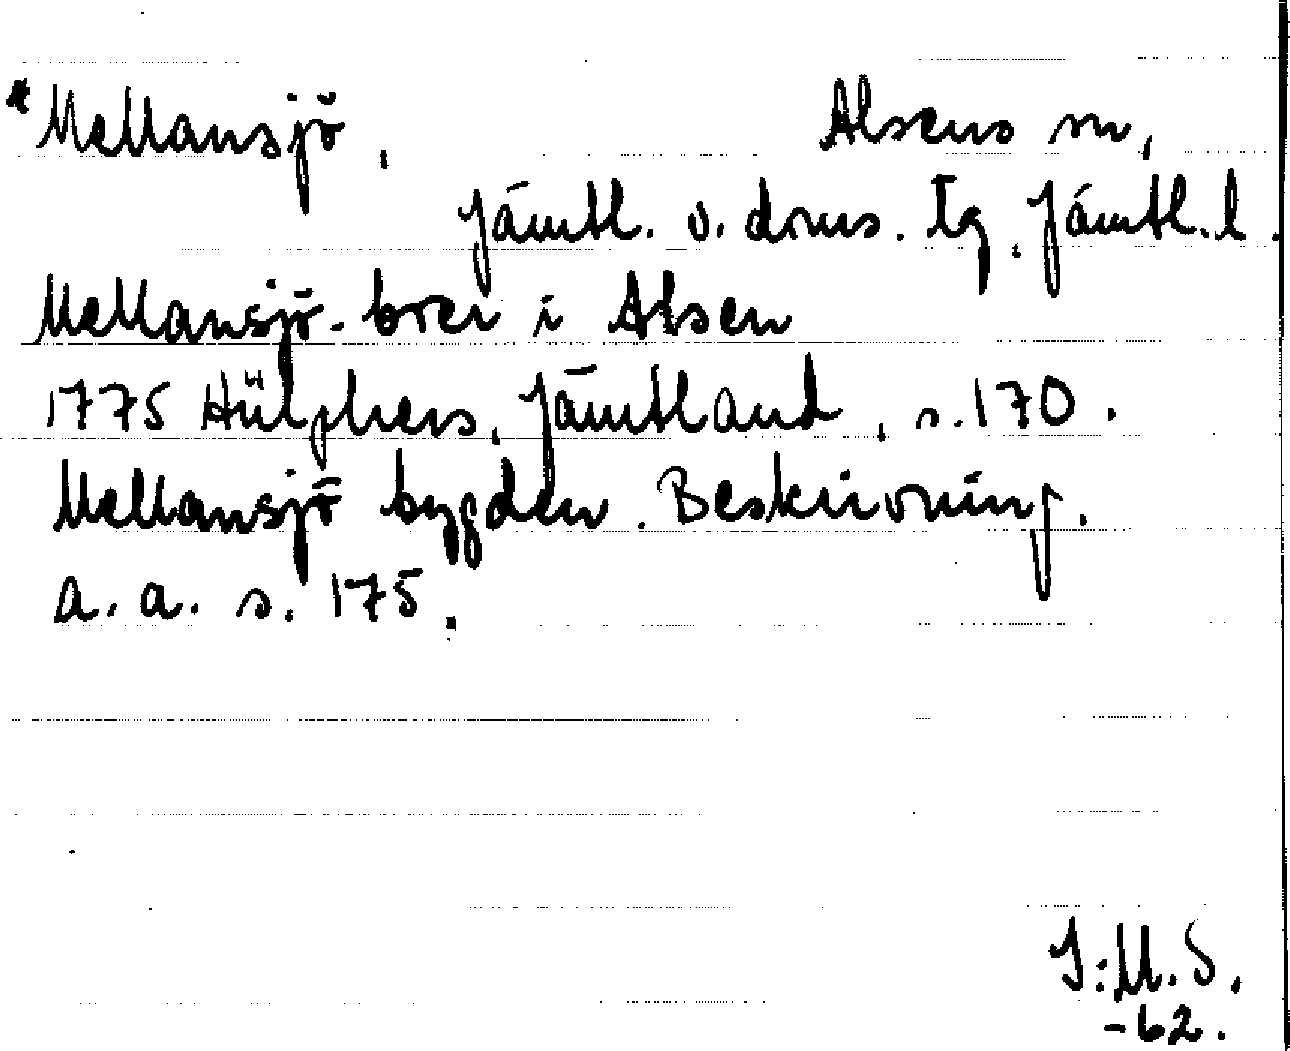 *Mellansjö, Alsens sn,
Jämtl. v. doms. tg. Jämtl. l.
Mellansjö-boer i Alsen
1775 Hülphers, Jämtland, s. 170.
Mellansjö bygden. Beskrivning.
a. a. s. 175.
I:M.S.
-62.